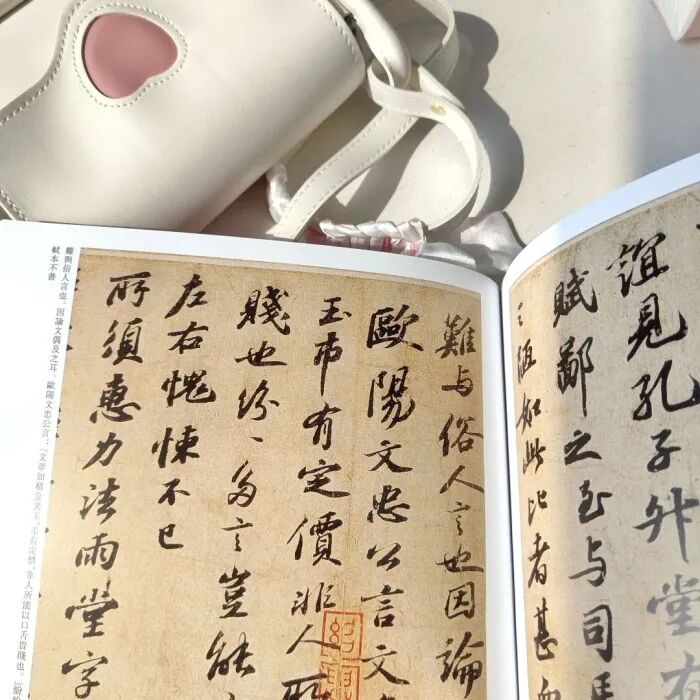 誼見孔子升堂
賦鄙之至与司馬
之陋如此比者甚
難与俗人言也因論
歐陽文忠公言文
玉市有定價非人所
賤也紛〻多言豈能
左右愧悚不已
所須惠力法雨堂字
難與俗人言也。因論文偶及之耳。歐陽文忠公言：『文章如精金美玉，市有定價，非人所能以口舌貴賤也。』紛
軾本不善